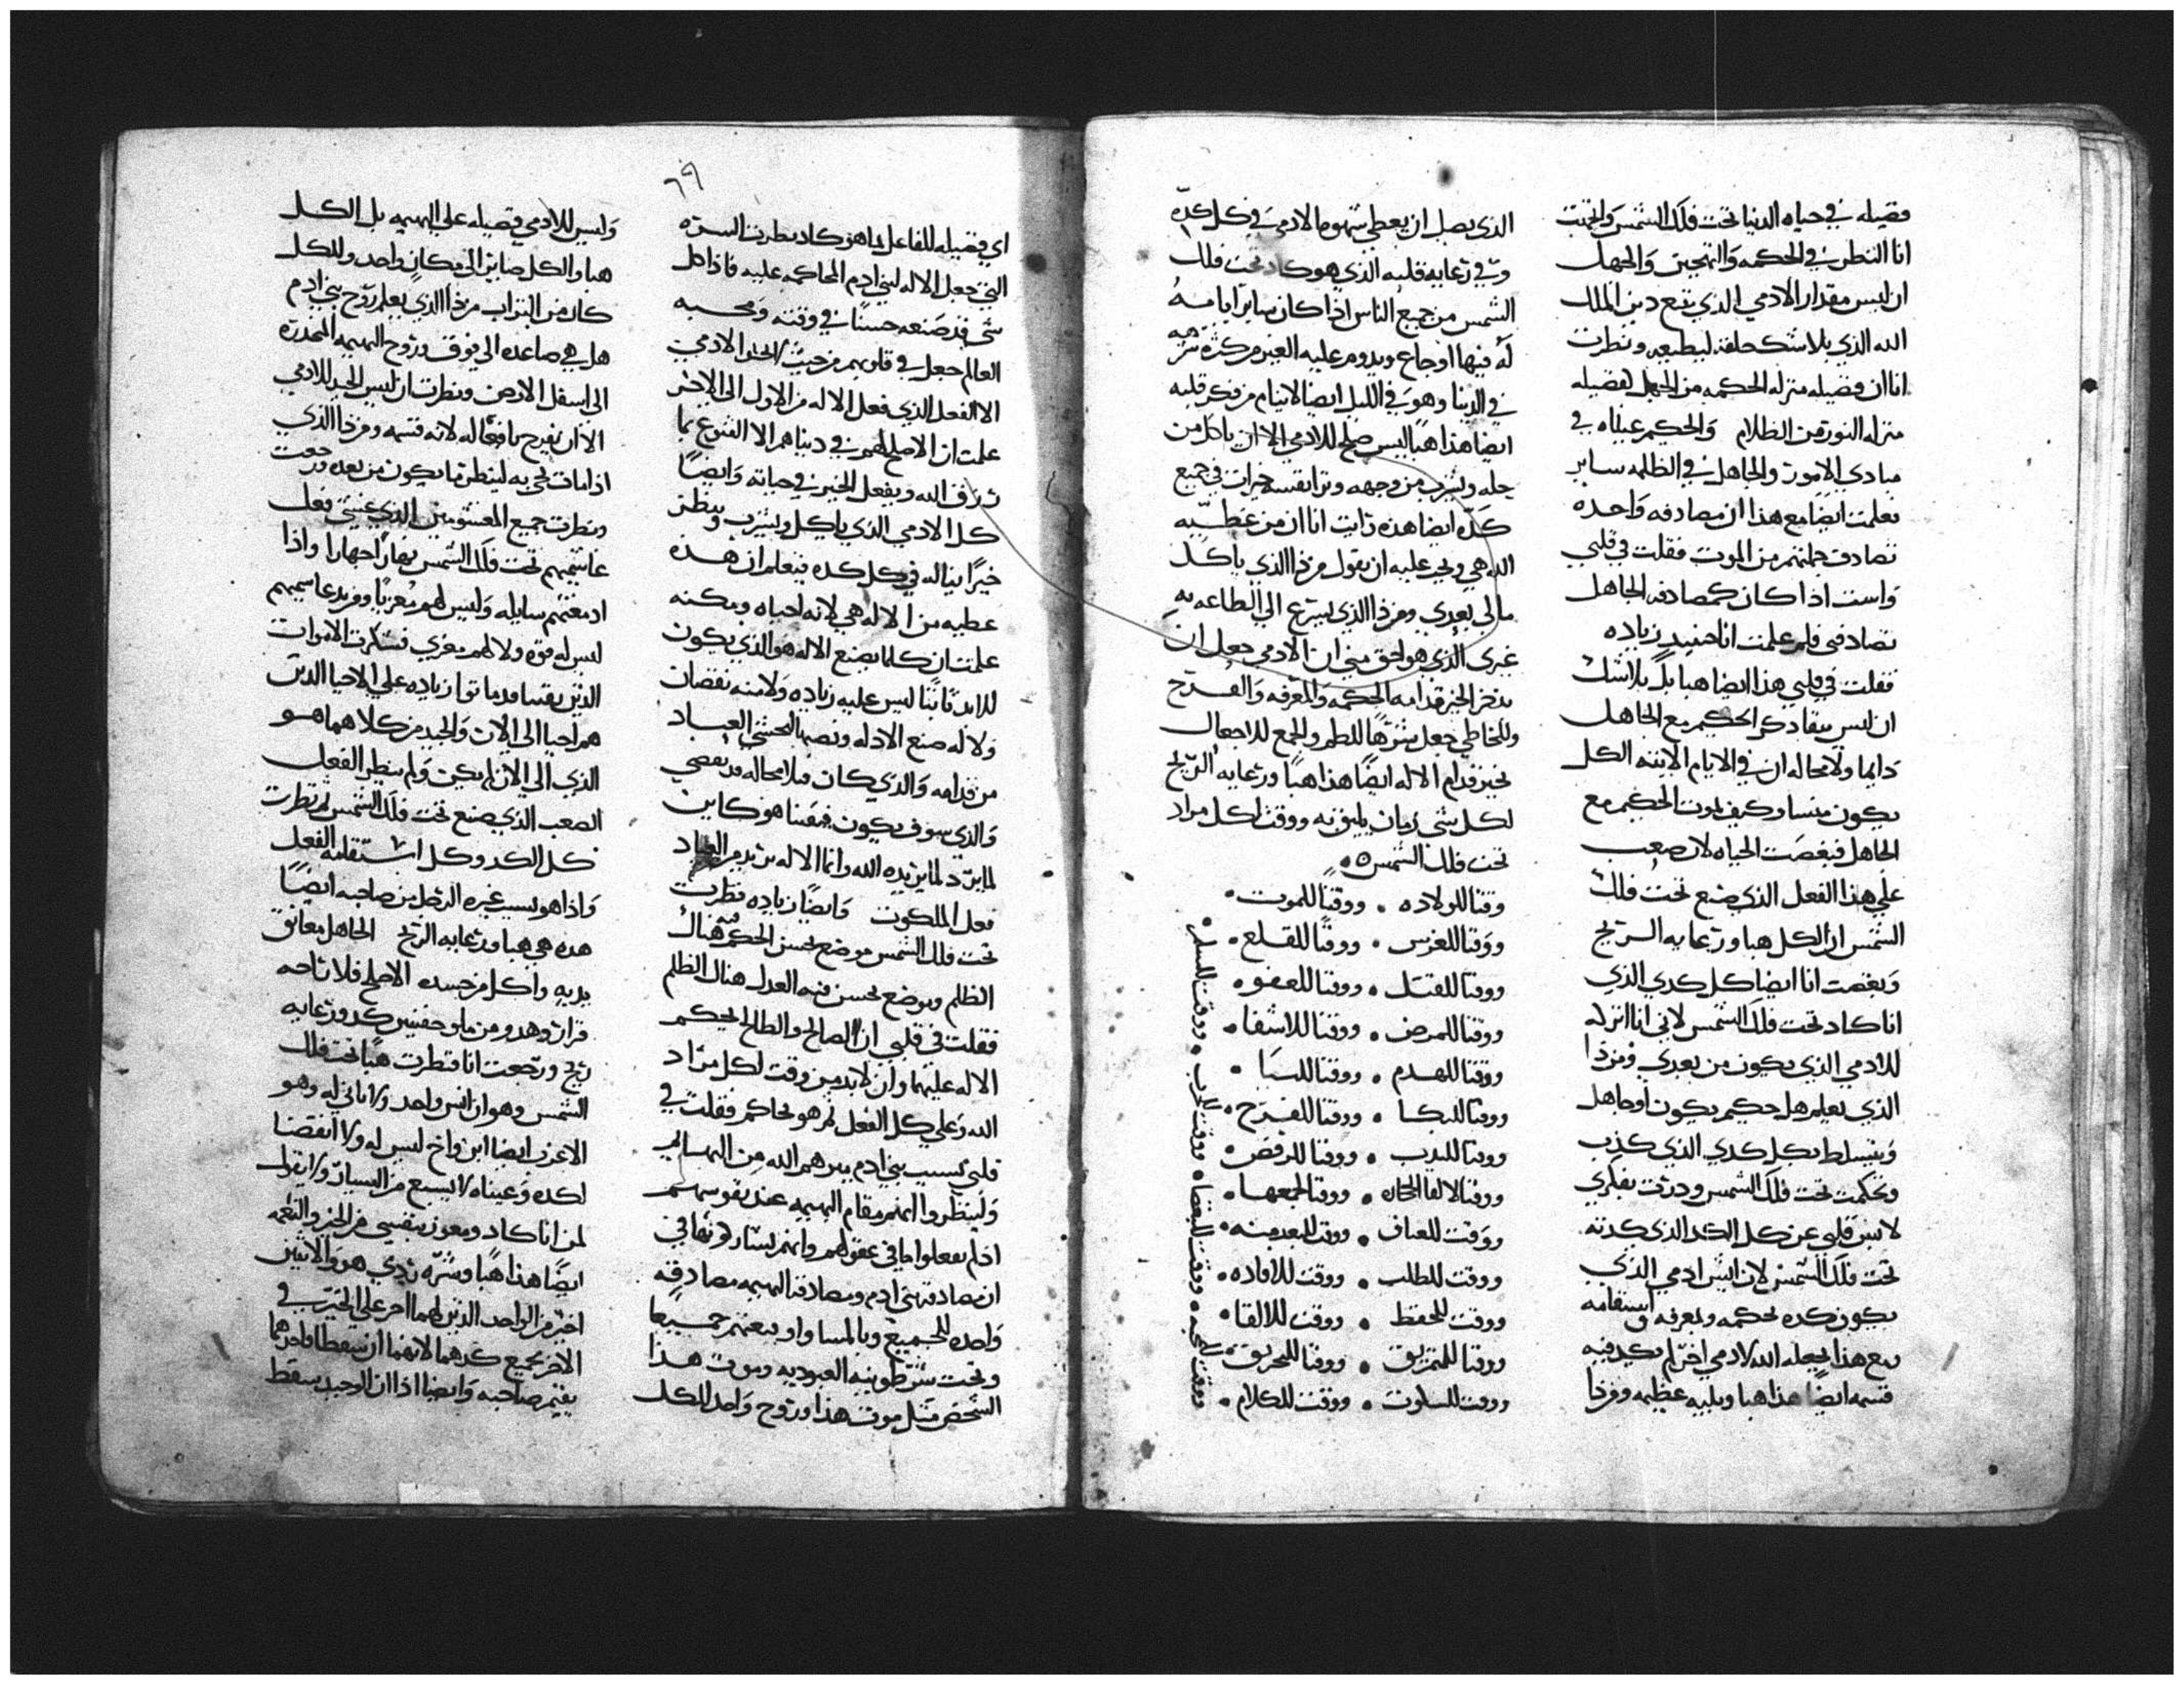 فضيله في حياه الدنيا تحت فلك الشمس والتفتت
انا لانظر في الحكمه والتهجين والجهل
ان ليس مقدار الادمي الذي يتبع دين الملك
الله الذي بلا شك خلقه ليطيعه ونظرت
انا ان فضيله منزله الحكمه من الجهل كفضيله
منزله النور من الظلام والحكيم عيناه في
مبادي الامور والجاهل في الظلمه ساير
فعلمت ايضا مع هذا ان مصادفه واحده
تصادف جملتهم من الموت فقلت في قلبي
واست اذا كان كمصادفه الجاهل
تصادفني فلم علمت انا حنيد زياده
فقلت في قلبي هذا ايضا هبا بل بلا شك
ان ليس يبقا ذكر الحكيم مع الجاهل
دايما ولا محاله ان في الايام الاتيه الكل
يكون منسا وكيف يموت الحكيم مع
الجاهل فبغضت الحياه لان صعب
علي هذا الفعل الذي صنع تحت فلك
الشمس ان الكل هبا ورعايه الريح
وبغضت انا ايضا كل كدي الذي
انا كاد تحت فلك الشمس لاني انا اتركه
للادمي الذي يكون من بعدي ومن ذا
الذي يعلم هل حكيم يكون او جاهل
ويتسلط بكل كدي الذي كذب
وتحكمت تحت فلك الشمس ودرت بفكري
لايس قلبي عن كل الكد الذي كدته
تحت فلك الشمس لان ايش ادمي الذي
يكون كده بحكمه وبمعرفه واستقامه
ومع هذا يجعله الله لادمي اخر لم يكد فيه
قسمه ايضا هذا هبا وبليه عظيمه ومن ذا
الذي يصل ان يعطي شهوه ما لادمي في كل كده
وفي رعايه قلبه الذي هو كاد تحت فلك
الشمس من جميع الناس اذا كان ساير ايامه
له فيها اوجاع ويدوم عليه الغير من كثره شره
في الدنيا وهو في الليل ايضا لا ينام من فكر قلبه
ايضا هذا هبا اليس صلح للادمي الا ان ياكل من
حله ويشرب من وجهه وترا نفسه خيرات في جميع
كده ايضا هذه رايت انا ان من عطيه
الله هي ويجر عليه ان يقول من ذا الذي ياكل
مالي بعدي ومن ذا الذي يسرع الي الطاعه به
غيري الذي هو احق مني ان الادمي جعل ان
يدخر الخير قدامه الحكمه والمعرفه والفرح
وللخاطي جعل شرها للطمر والجمع للاجعال
لخير قدام الاله ايضا هذا هبا ورعايه الريح
لكل شي زمان يليق به ووقت لكل مراد
تحت فلك الشمس
وقتا للولاده • ووقتا للموت •
ووقتا للغرس • ووقتا للقلع •
ووقتا للقتل • ووقتا للعفو •
ووقتا للمرض • ووقتا للاشفا •
ووقتا للهدم • ووقتا للبنا •
ووقتا للبكا • ووقتا للفرح •
ووقتا للندب • ووقتا للرقص •
ووقتا لالقا الحجاره • ووقتا لجمعها •
ووقت للعناق • ووقت للبعد منه •
ووقت للطلب • ووقت للاباده •
ووقت للحفظ • ووقت للالقا •
ووقتا للتمزيق • ووقتا للتخريق •
ووقت للسكوت • ووقت للكلام •
ووقت للمحبه • ووقت للبغضا • ووقت للحرب • ووقت للسلم •
٦٩
اي فضيله للفاعل بما هو كاد نظرت السيره
التي جعل الاله لبني ادم المحاكمه عليه فاذا كل
شي قد صنعه حسنا في وقته ومحبه
العالم جعل في قلوبهم من حيث لا يجد الادمي
الا الفعل الذي فعل الاله من الاول الى الاخر
علمت ان لا صلح لهم في دنياهم الا القنوع بما
رزق الله ويفعل الخير في حياته وايضا
كل الادمي الذي ياكل ويشرب وينظر
خيرا يناله في كل كده فيعلم ان هذه
عطيه من الاله هي لانه احياه ومكنه
علمت ان كلما يصنع الاله هو الذي يكون
للابد ثابتا ليس عليه زياده ولا منه نقصان
ولا له صنع الادله ونصبها لتخشي العباد
من قدامه والذي كان فبلا محاله قد تقضي
والذي سوف يكون فيقينا هو كاين
لما يرد لما يريده الله وانما الاله يريد من العباد
فعل الملكوت وايضا زياده نظرت
تحت فلك الشمس موضع يحسن الحكم فيه هناك
الظلم وموضع يحسن فيه العدل هناك الظلم
فقلت في قلبي ان الصالح والطالح يحكم
الاله عليهما وان لابد من وقت لكل مراد
الله وعلي كل الفعل ثم هو يحاكم فقلت في
قلبي بسبب بني ادم ميزهم الله من البهايم
ولينظروا انهم مقام البهيمه عند نفوسهم
اذ لم يفعلوا ما في عقولهم وانهم يشاركونها في
ان مصادفه بني ادم ومصادفه البهيمه مصادفه
واحده للجميع وبالمساواه يتبعهم جميعا
وتحت شرطونيه العبوديه وموت هذا
الشخص مثل موت هذا وروح واحد للكل
وليس للادمي فضيله علي البهيمه بل الكل
هبا والكل صاير الى مكان واحد والكل
كان من التراب من ذا الذي يعلم روح بني ادم
هل هي صاعده الى فوق وروح البهيمه المنحدره
الى اسفل الارض ونظرت ان ليس الخير للادمي
الا ان يفرح بافعاله لانه قسمه ومن ذا الذي
اذا مات يجي به لينظر ما يكون من بعده ورجعت
ونظرت جميع المغشومين الذي عنيتي فعل
غاشميهم تحت فلك الشمس نهارا جهارا واذا
ادمعتهم سايله وليس لهم معزيا ومن يد غاشميهم
ليس له قوه ولا لهم معزي فشكرت الاموات
الذين نفسا قد ماتوا زياده علي الاحيا الذين
هم احيا الى الان والجيد من كلاهما هو
الذي الى الان لم يكن ولم ينظر الفعل
الصعب الذي صنع تحت فلك الشمس ثم نظرت
كل الكد وكل استقامه الفعل
واذا هو بسبب غيره الرجل من صاحبه ايضا
هذه هي هبا ورعايه الريح الجاهل معانق
يديه واكل من جسده الاصلح فلا راحه
قرار وهدو من ملو حفنتين كد ورعايه
ريح ورجعت انا فنظرت هبا تحت فلك
الشمس وهو ان ليس واحد ولا ثاني له وهو
الاعزب ايضا ابن واخ ليس له ولا انقضا
لكده وعيناه لا يشبع من اليسار ولا يقول
لمن انا كاد ومعوز نفسي من الخير والنعمه
ايضا هذا هبا وشره ردي هو والاثنين
اخير من الواحد الذين لهما اجر علي الخير في
الاخر بجميع كدهما لانهما ان سقطا فاحدهما
يقيم صاحبه وايضا اذا ان الوحيد سقط